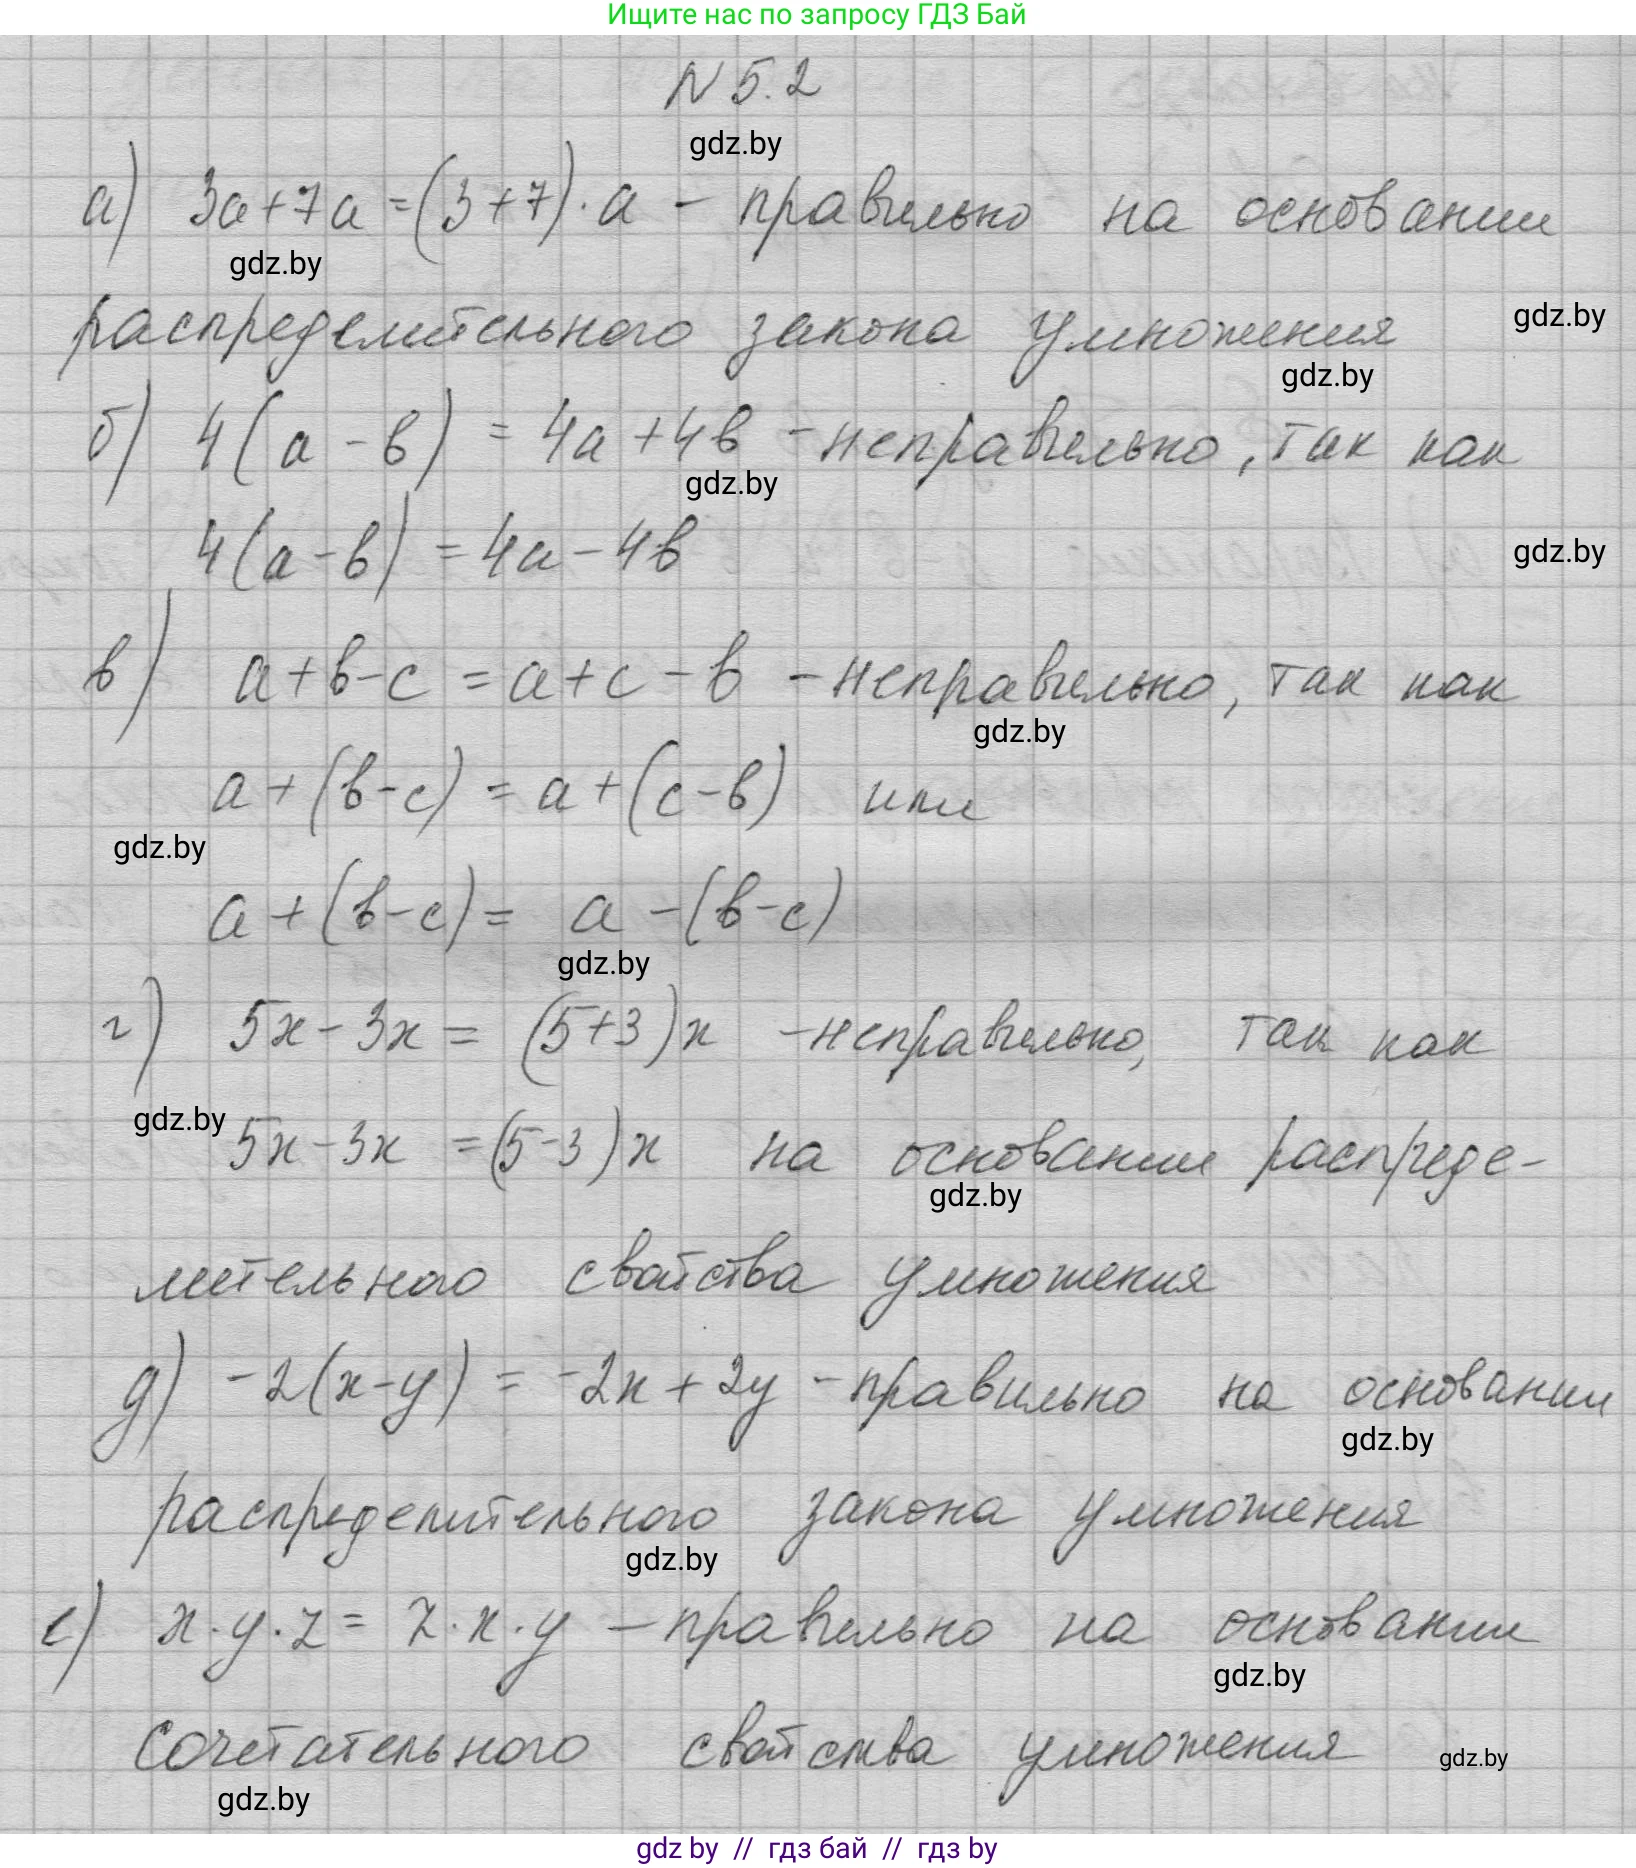 Ищите нас по запросу ГДЗ Бай
N 5.2
gdz.by
а) 3a+7a=(3+7)·a - правильно на основании
gdz.by
распределительного закона умножения
gdz.by
gdz.by
б) 4(a-b) = 4a+4b - неправильно, так как
gdz.by
4(a-b) = 4a-4b
gdz.by
в) a+b-c = a+c-b - неправильно, так как
gdz.by
a+(b-c) = a+(c-b) или
gdz.by
a+(b-c) = a-(b-c)
gdz.by
г) 5x-3x = (5+3)x - неправильно, так как
gdz.by
5x-3x = (5-3)x на основании распреде-
gdz.by
лительного свойства умножения
д) -2(x-y) = -2x+2y - правильно на основании
gdz.by
распределительного закона умножения
gdz.by
е) x·y·z = z·x·y - правильно на основании
gdz.by
сочетательного свойства умножения
gdz.by
gdz.by
gdz by // гдз бай // гдз by